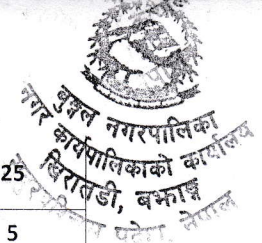 बुङ्गल नगरपालिका
नगर कार्यपालिकाको कार्यालय
खिरातडी, बझाङ्ग
नेपाल
25
5